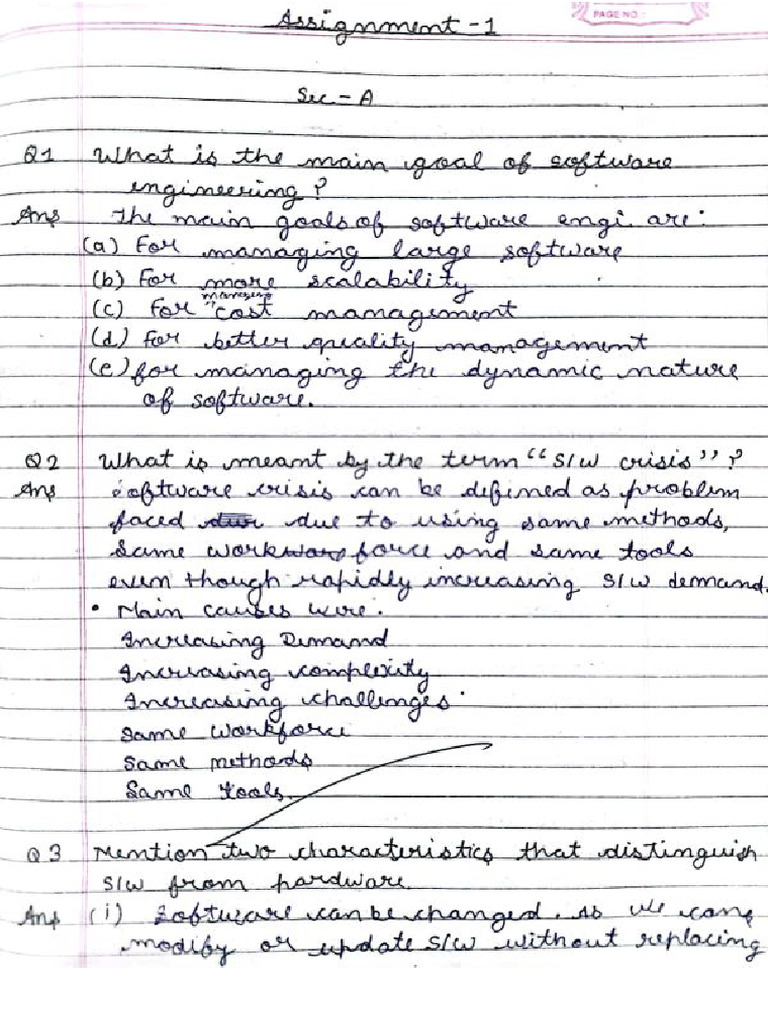 Assignment - 1
PAGE NO.:
Sec - A
Q1 What is the main goal of software
engineering ?
Ans The main goals of software engi. are:
(a) For managing large software
(b) For more scalability
(c) For cost management
(d) For better quality management
(e) for managing the dynamic nature
of software.
Q2 What is meant by the term "S/W crisis" ?
Ans Software crisis can be defined as problem
faced due to using same methods,
same workforce and same tools
even though rapidly increasing S/W demand.
• Main causes were.
Increasing Demand
Increasing complexity
Increasing challenges
Same workforce
Same methods
Same tools.
Q3 Mention two characteristics that distinguish
S/W from hardware.
Ans (i) Software can be changed. as we can
modify or update S/W without replacing